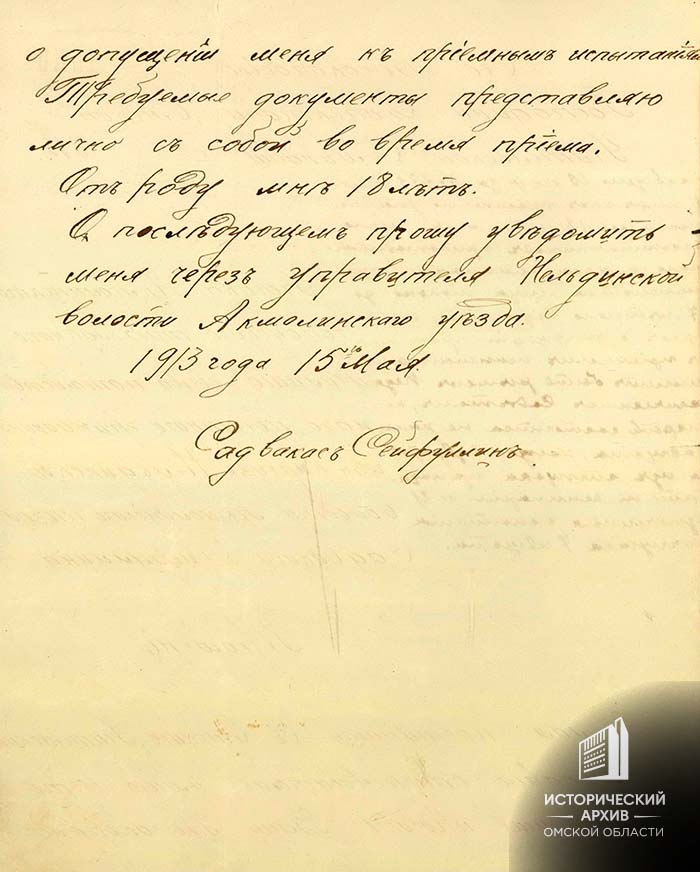 о допущеніи меня къ пріемнымъ испытаніям
Требуемые документы представляю
лично съ собой во время пріема.
Отъ роду мнѣ 18 лѣтъ.
О послѣдующемъ прошу увѣдомить
меня черезъ управителя Нельдинской
волости Акмолинскаго уѣзда.
1913 года 15 Мая.
Садвакасъ Сейфуллинъ.
ИСТОРИЧЕСКИЙ
АРХИВ
ОМСКОЙ ОБЛАСТИ